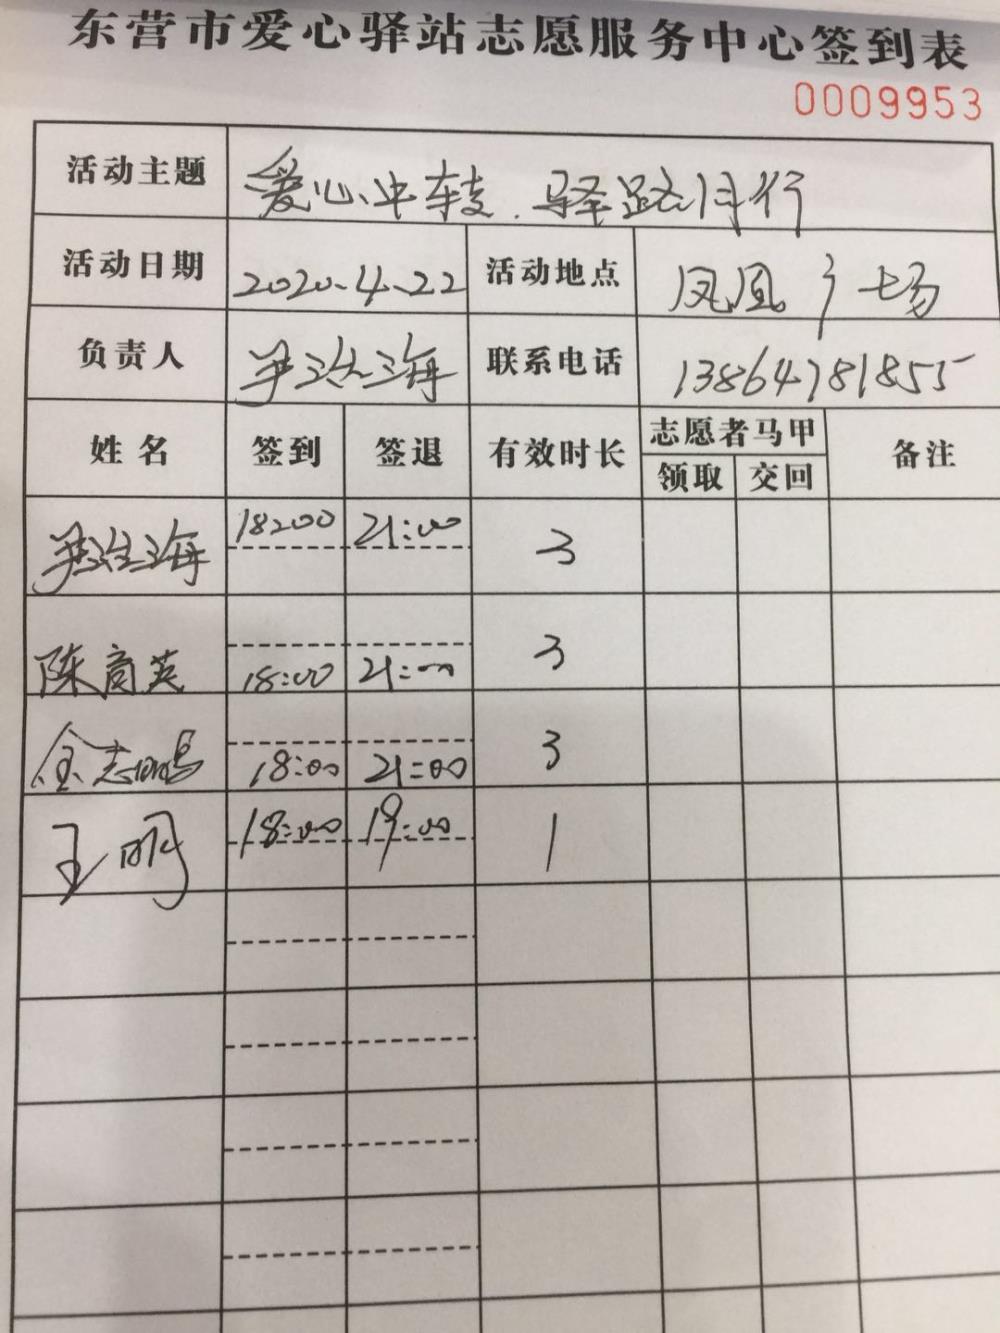 东营市爱心驿站志愿服务中心签到表
0009953
活动主题 爱心中转.驿路同行
活动日期 2020.4.22 活动地点 凤凰广场
负责人 尹治海 联系电话 13864781855
姓名 签到 签退 有效时长 志愿者马甲 备注
领取 交回
尹治海 18:00 21:00 3
陈商英 18:00 21:00 3
金志鹏 18:00 21:00 3
王明 18:00 19:00 1